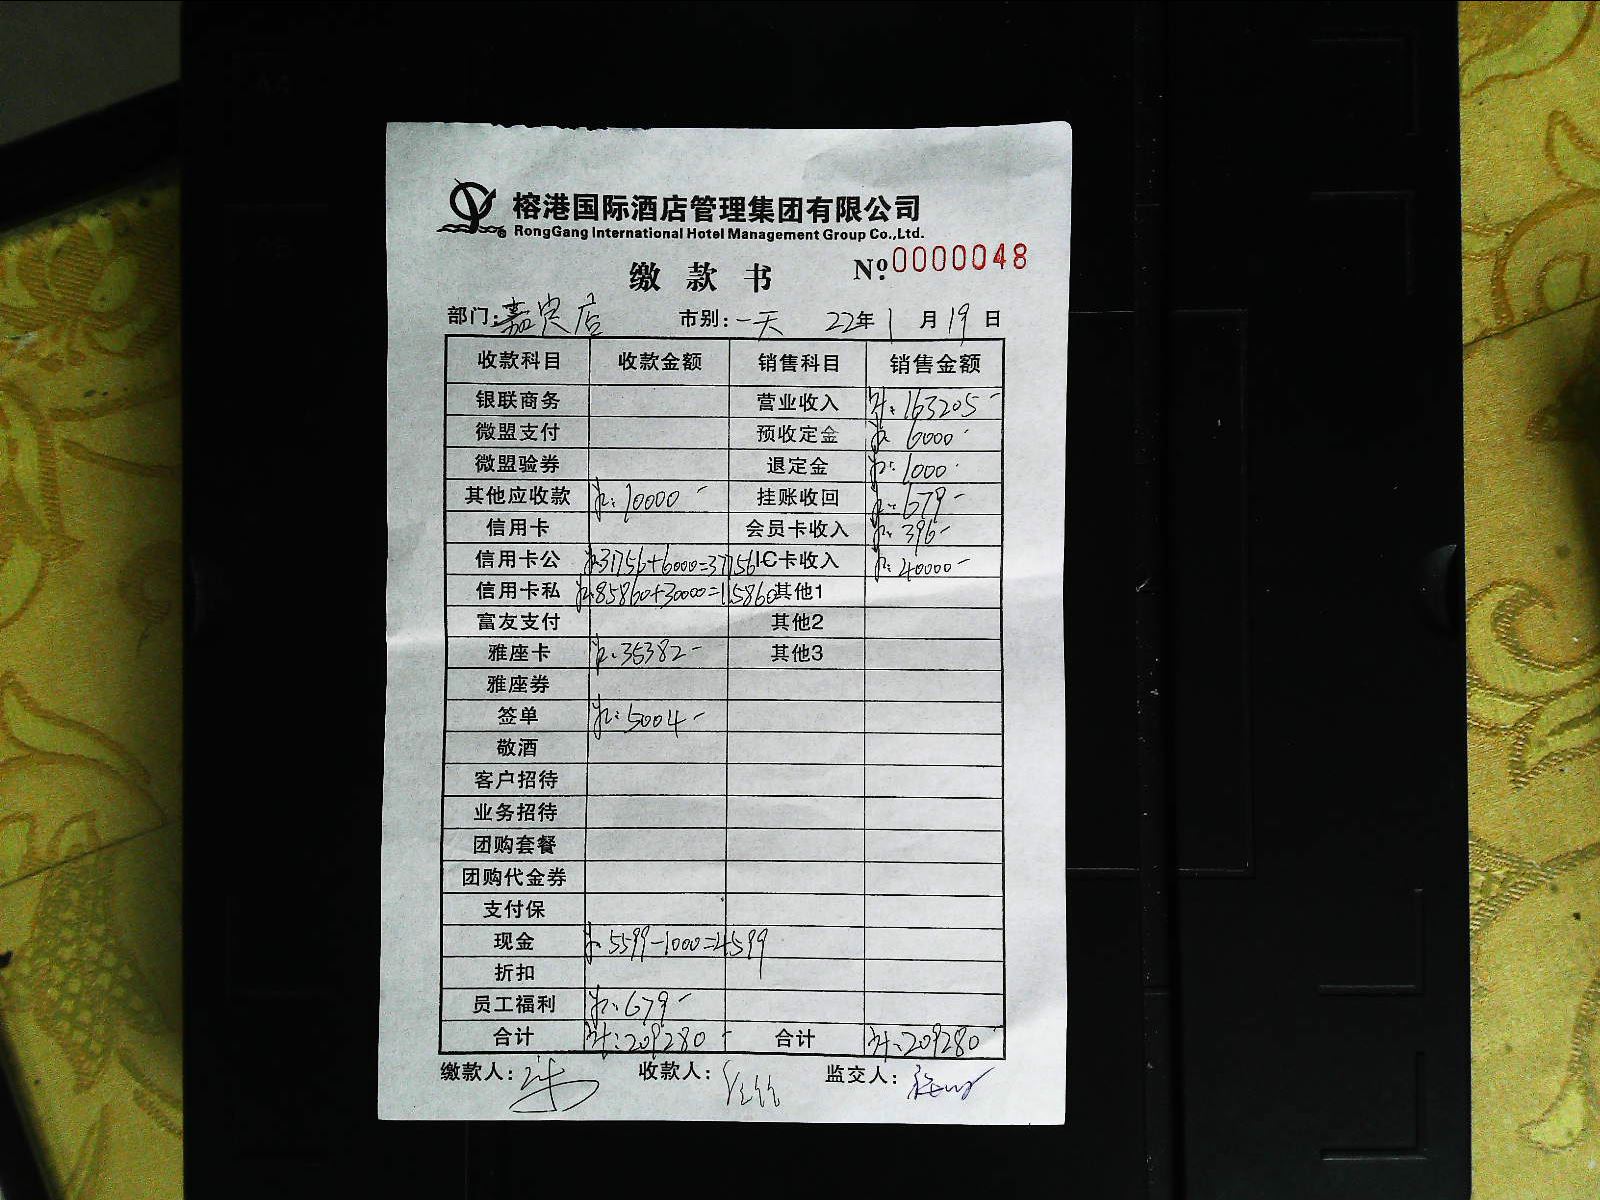 榕港国际酒店管理集团有限公司
RongGang International Hotel Management Group Co.,Ltd.
缴款书 Nº:0000048
部门:嘉宾店 市别:一天 22年1月19日
收款科目 收款金额 销售科目 销售金额
银联商务 营业收入 计:163205-
微盟支付 预收定金 计:6000-
微盟验券 退定金 计:1000-
其他应收款 计:10000- 挂账收回 计:679-
信用卡 会员卡收入 计:396-
信用卡公 计:31756+6000=37756 IC卡收入 计:40000-
信用卡私 计:85860+30000=115860 其他1
富友支付 其他2
雅座卡 计:35382- 其他3
雅座券
签单 计:5004-
敬酒
客户招待
业务招待
团购套餐
团购代金券
支付保
现金 计:5599-1000=4599
折扣
员工福利 计:679-
合计 计:209280- 合计 计:209280-
缴款人: 收款人: 监交人: